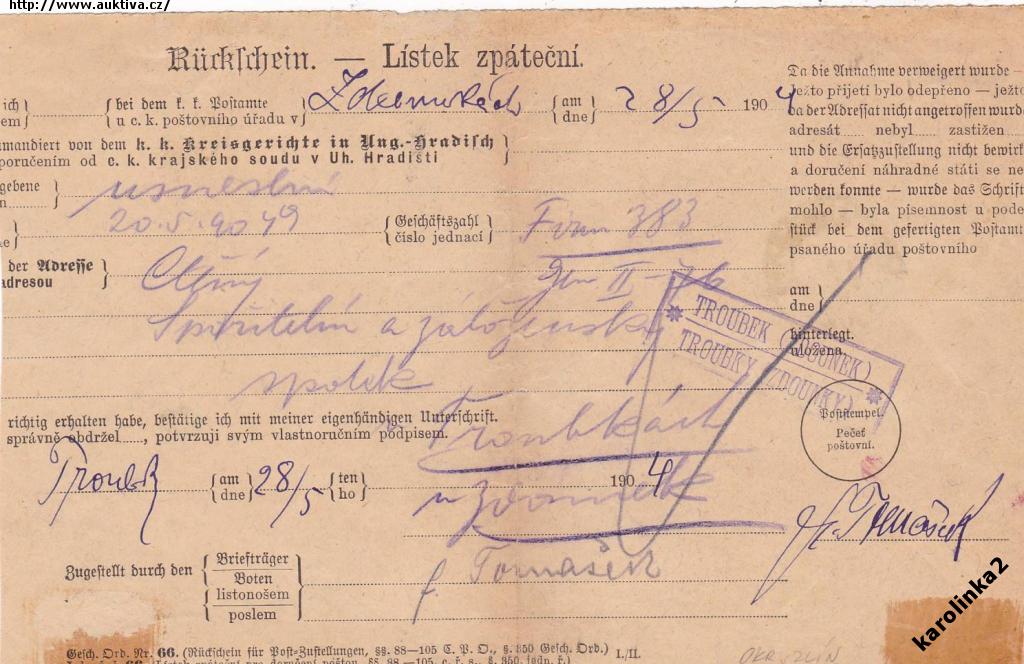 http://www.auktiva.cz/
Rückschein. — Lístek zpáteční.
ich
bei dem k. k. Postamte
u c. k. poštovního úřadu v
am
dne
28/5
190 4
mandiert von dem k. k. Kreisgerichte in Ung.-Hradisch
poručením od c. k. krajského soudu v Uh. Hradišti
gebene
usnesení
20.5.
Geschäftszahl
číslo jednací
Firm 383
der Adresse
adresou
Ctěný
Gen II-76
Spořitelní a záloženský
spolek
Troubkách
u Zdounek
richtig erhalten habe, bestätige ich mit meiner eigenhändigen Unterschrift.
správně obdržel...., potvrzuji svým vlastnoručním podpisem.
Troubk
am
dne
28/5
ten
ho
190 4
Zugestellt durch den
Briefträger
Boten
listonošem
poslem
Tomášek
Da die Annahme verweigert wurde —
Ježto přijetí bylo odepřeno — ježto
da der Adressat nicht angetroffen wurde
adresát nebyl zastižen
und die Ersatzzustellung nicht bewirk
a doručení náhradné státi se ne
werden konnte — wurde das Schrift
mohlo — byla písemnost u pode
stück bei dem gefertigten Postamt
psaného úřadu poštovního
am
dne
hinterlegt.
uložena.
TROUBEK (ZDOUNEK)
TROUBKY (ZDOUNKY)
Poststempel.
Pečeť
poštovní.
Tomášek
Gesch. Ord. Nr. 66. (Rückschein für Post-Zustellungen, §§. 88—105 C. P. O., §. 350 Gesch. Ord.)
I./II.
karolinka2
OKR. ZLÍN